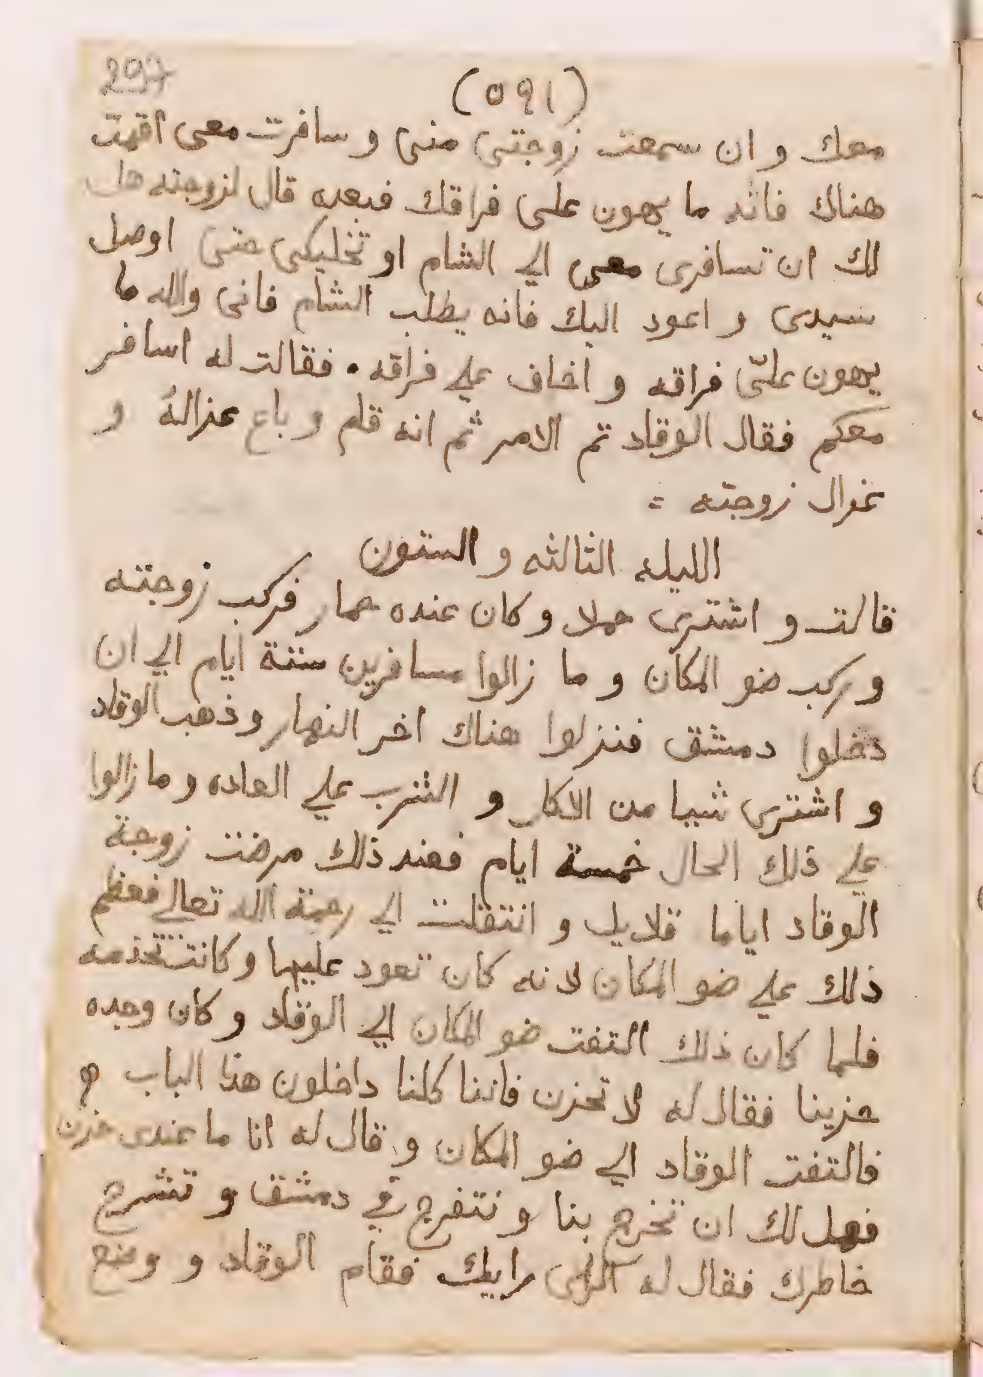 297
(٥٩١)
معك و ان سمعت زوجتي مني و سافرت معي اقمت
هناك فانه ما يهون على فراقك فبعده قال لزوجته هل
لك ان تسافرى معى الي الشام او تخليكى حتى اوصل
سيدى و اعود اليك فانه يطلب الشام فانى والله ما
يهون عليّ فراقه و اخاف علي فراقه . فقالت له اسافر
معكم فقال الوقاد تم الامر ثم انه قام و باع عزاله و
عزال زوجته =
الليله الثالثه و الستون
قالت و اشترى حملا و كان عنده حمار فركب زوجته
و ركب ضو المكان و ما زالوا مسافرين ستة ايام الي ان
دخلوا دمشق فنزلوا هناك اخر النهار و ذهب الوقاد
و اشترى شيا من الاكل و الشرب علي العاده و ما زالوا
علي ذلك الحال خمسة ايام فعند ذلك مرضت زوجة
الوقاد اياما قلايل و انتقلت الي رحمة الله تعالي فعظم
ذلك علي ضو المكان لانه كان تعود عليها و كانت تخدمه
فلما كان ذلك التفت ضو المكان الي الوقاد و كان وجده
حزينا فقال له لا تحزن فاننا كلنا داخلون هذا الباب
فالتفت الوقاد الي ضو المكان و قال له انا ما عندى حزن
فهل لك ان تخرج بنا و نتفرج في دمشق و تنشرح
خاطرك فقال له الراى رايك فقام الوقاد و وضع